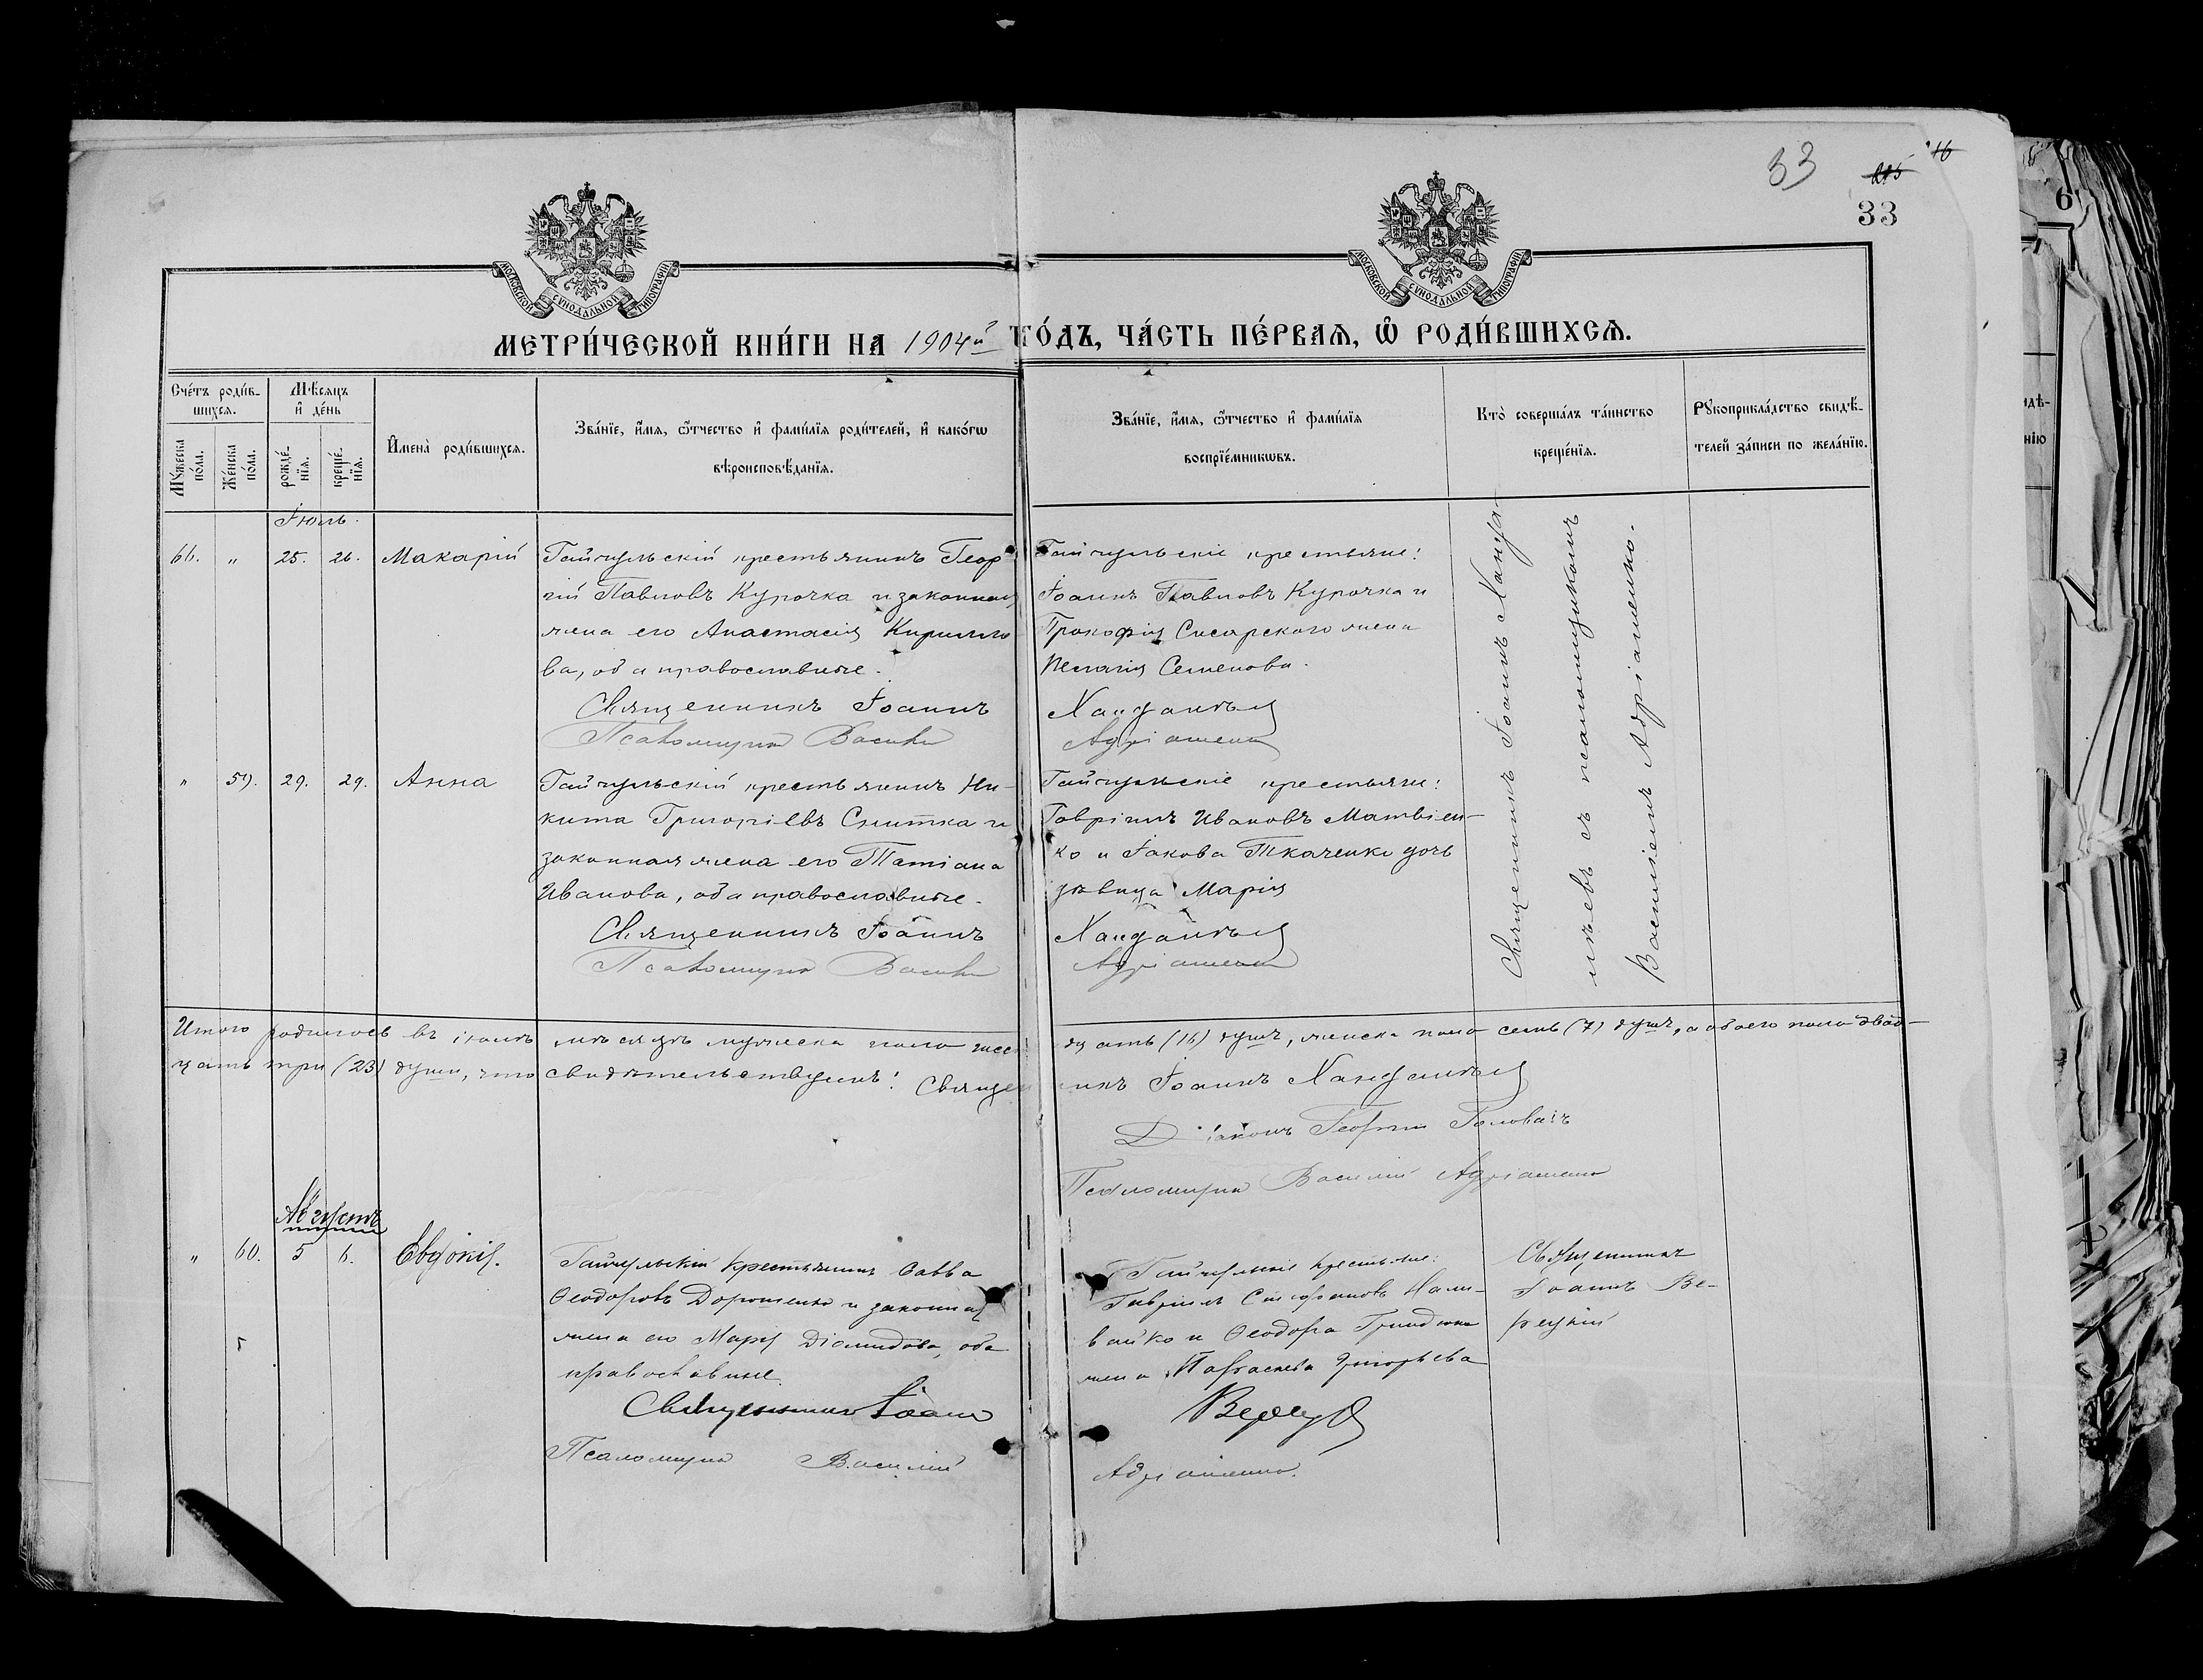 33
215
116
33
6
МОСКОВСКОЙ СУНОДАЛЬНОЙ ТИПОГРАФІИ
МОСКОВСКОЙ СУНОДАЛЬНОЙ ТИПОГРАФІИ
МЕТРИ́ЧЕСКОЙ КНИ́ГИ НА 1904й ГО́ДЪ, ЧА́СТЬ ПЕ́РВАѦ, Ѡ҆ РОДИ́ВШИХСѦ.
Сче́тъ роди́в-
шихсѧ.
Мѣ́сѧцъ
и҆ де́нь
Мꙋ́жеска
по́ла.
Же́нска
по́ла.
рожде́-
нїѧ.
креще́-
нїѧ.
И҆мена̀ роди́вшихсѧ.
Зва́нїе, и҆́мѧ, ѻ҆́тчество и҆ фами́лїѧ роди́телей, и҆ како́гѡ
вѣроисповѣ́данїѧ.
Зва́нїе, и҆́мѧ, ѻ҆́тчество и҆ фами́лїѧ
воспрїе́мникѡвъ.
Кто̀ соверша́лъ та́инство
креще́нїѧ.
Рꙋкоприкла́дство свидѣ́-
телей за́писи по жела́нїю.
Іюль.
66. " 25. 26. Макарій
Гайчульскій крестьянинъ Геор
гій Павловъ Курочка и законная
жена его Анастасія Кирилло
ва, оба православные.
Священникъ Іоаннъ
Псаломщикъ Василій
Гайчульскіе крестьяне:
Іоаннъ Павловъ Курочка и
Прокофія Снисарского жена
Пелагія Семенова.
Хандалѣев
Адріаненко
Священникъ Іоаннъ Хандa-
лѣевъ съ псаломщикомъ
Василіемъ Адріаненко.
" 59. 29. 29. Анна
Гайчульскій крестьянинъ Ни-
кита Григоріевъ Снитка и
законная жена его Татіана
Иванова, оба православные.
Священникъ Іоаннъ
Псаломщикъ Василій
Гайчульскіе крестьяне:
Гавріилъ Ивановъ Матвіен-
ко и Іакова Ткаченка дочь
дѣвица Марія
Хандалѣев
Адріаненко
Итого родилось въ іюлѣ мѣсяцѣ мужеска пола шестнадцать (16) душъ, женска пола семь (7) душъ, а обоего пола двад-
цать три (23) души, что свидѣтельствуемъ: Священникъ Іоаннъ Хандалѣев
Діаконъ Георгій Головачъ
Псаломщикъ Василій Адріаненко
Августъ
" 60. 5 6. Евдокія.
Гайчульскій крестьянинъ Савва
Ѳеодоровъ Дорошенко и законная
жена его Марія Діомидова, оба
православные.
Священникъ Іоаннъ
Псаломщикъ Василій
Гайчульскіе крестьяне:
Гавріилъ Стефановъ Нали-
вайко и Ѳеодора
жена Параскева Григорьева
Адріаненко.
Священникъ
Іоаннъ Ве-
рецкій